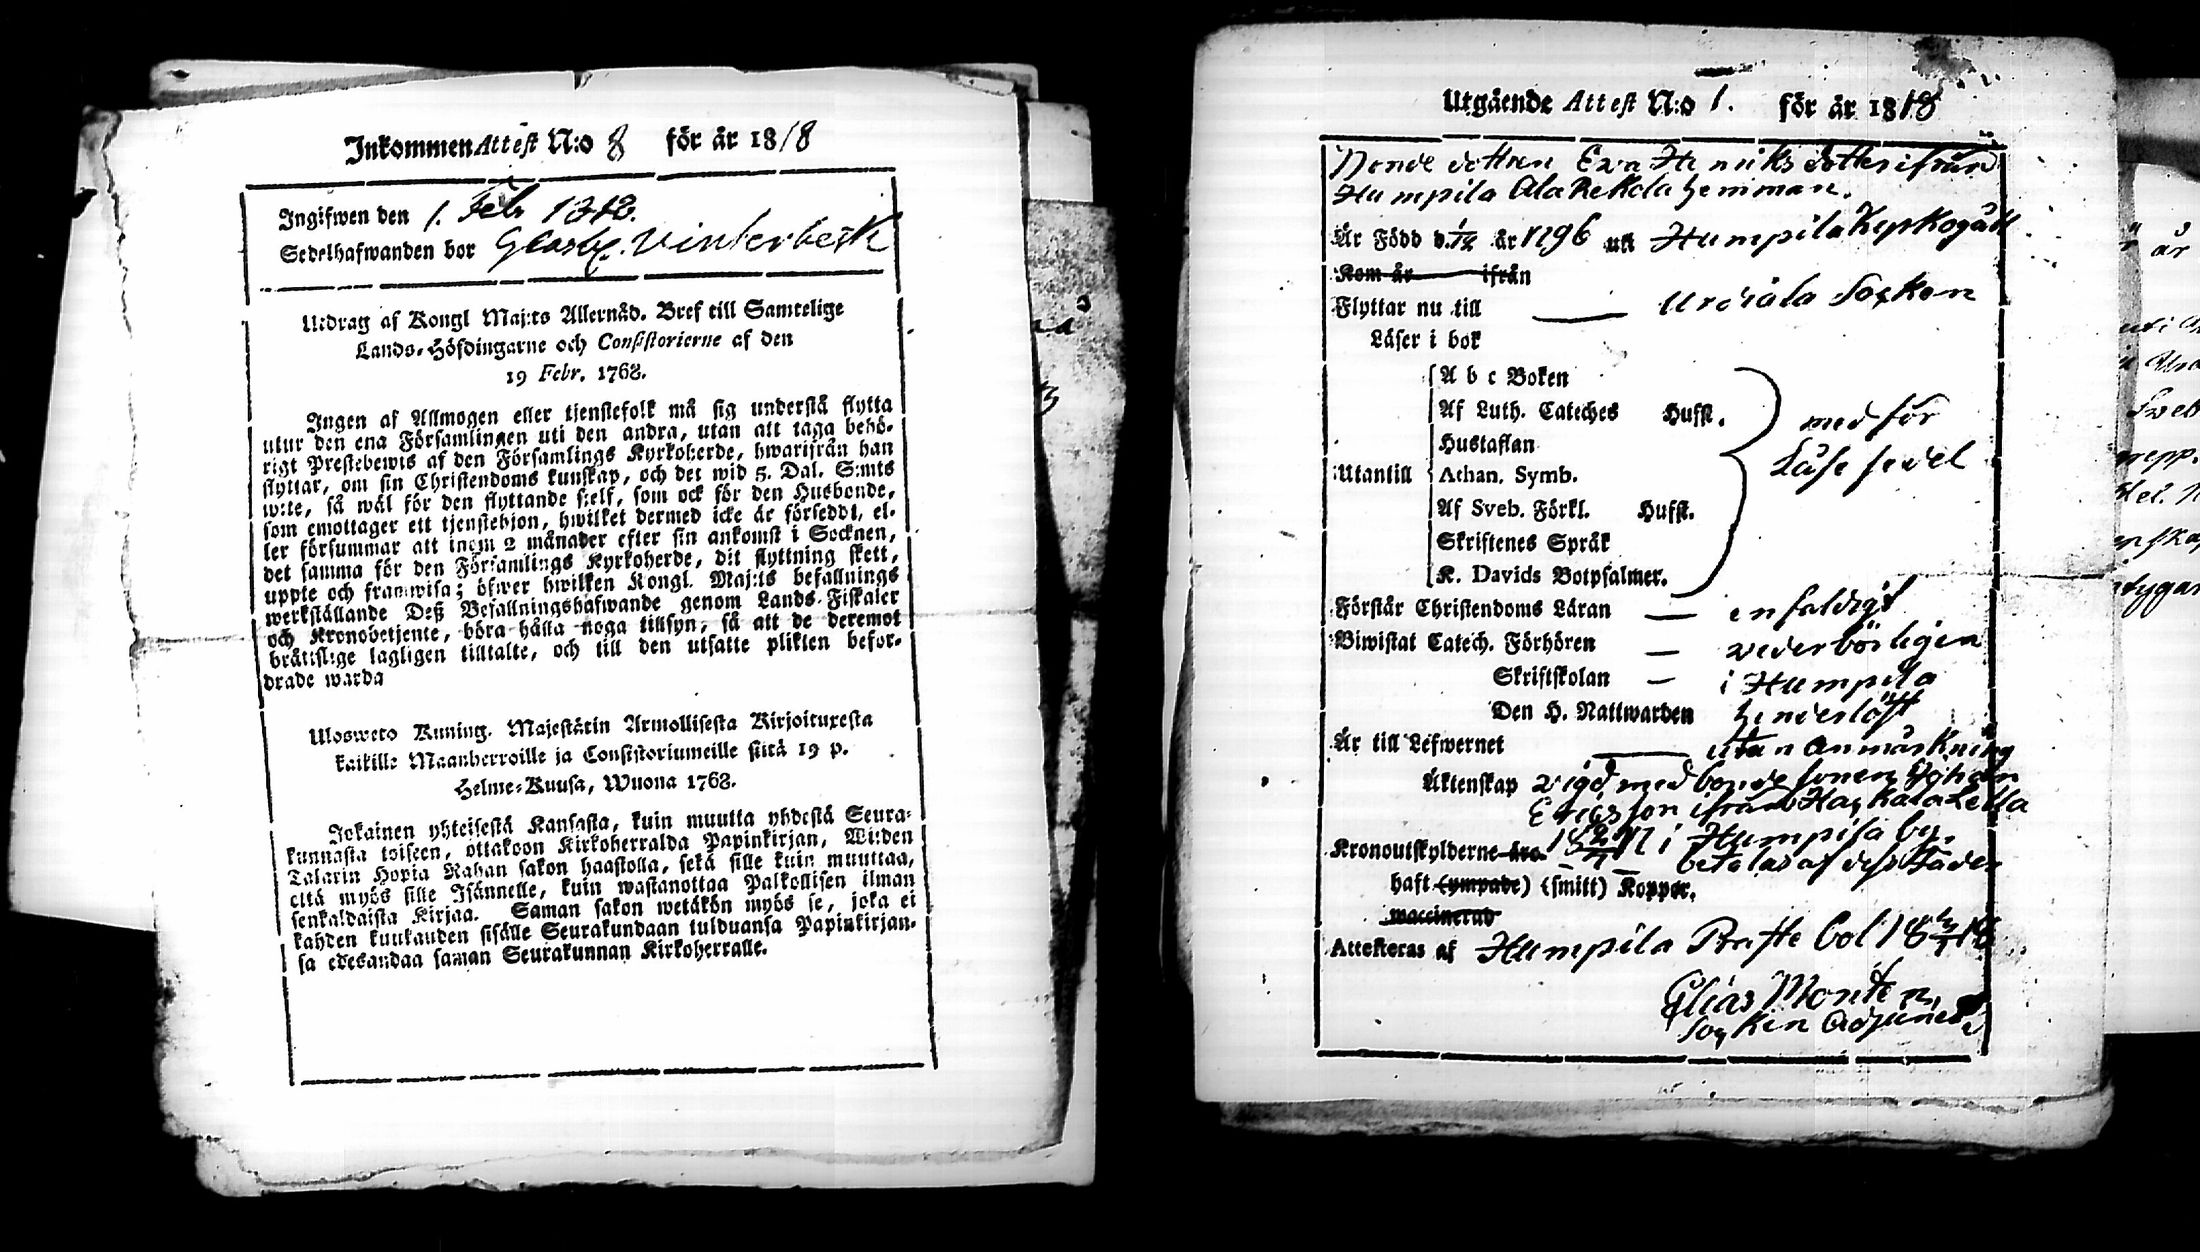 Inkommen Attest N:o 8 för år 1818
Ingifwen den 1. Feb 1818.
Sedelhafwanden bor
Utdrag af Kongl Maj:ts Allernåd. Bref till Samtelige
Lands-Höfdingarne och Consistorierne af den
19 Febr. 1768.
Ingen af Allmogen eller tjenstefolk må sig understå flytta
utur den ena Församlingen uti den andra, utan att taga behö-
rigt Prestebewis af den Församlings Kyrkoherde, hwarifrån han
flyttar, om sin Christendoms kunskap, och det wid 5. Dal. S:mts
wite, så wäl för den flyttande sielf, som ock för den Husbonde,
som emottager ett tjenstehjon, hwilket dermed icke är försedt, el-
ler försummar att inom 2 månader efter sin ankomst i Socknen,
det samma för den Församlings Kyrkoherde, dit flyttning skett,
uppte och framwisa; öfwer hwilken Kongl. Maj:ts befallnings
werkställande Deß Befallningshafwande genom Lands-Fiskaler
och Kronobetjente, böra hålla noga tillsyn, så att de deremot
bråttslige lagligen tilltalte, och till den utsatte plikten befor-
drade warda
Ulosweto Kuning. Majestätin Armollisesta Kirjoituxesta
kaikille Maanherroille ja Consistoriumeille siitä 19 p.
Helme-Kuusa, Wuona 1768.
Jokainen yhteisestä Kansasta, kuin muutta yhdestä Seura-
kunnasta toiseen, ottakoon Kirkoherralda Papinkirjan, Wiiden
Talarin Hopia Rahan sakon haastolla, sekä sille kuin muuttaa,
että myös sille Isännelle, kuin wastanottaa Palkollisen ilman
senkaldaista Kirjaa. Saman sakon wetäkön myös se, joka ei
kahden kuukauden sisälle Seurakundaan tulduansa Papinkirjan-
sa edesandaa saman Seurakunnan Kirkoherralle.
Utgående Attest N:o 1. för år 1818
Bonde dottren Eva Henriks dotter ifrån
Humpila Ala Rekola hemman.
Är Född d. 1/12 år 1796 uti Humpila
Kom år ifrån
Flyttar nu till — Urdiala Soken
Läser i bok
A b c Boken
Af Luth. Cateches Husfl.
Hustaflan
Utantill Athan. Symb.
Af Sveb. Förkl. Husfl.
Skriftenes Språk
K. Davids Botpsalmer.
med för
Läse sedel
Förstår Christendoms Läran — enfaldigt
Biwistat Catech. Förhören — vederbörligen
Skriftskolan — i Humpila
Den H. Nattwarden
Är till Lefwernet — utan anmärkning
Äktenskap vigd med bonde sonen Johan
Ericsson ifrån
i Humpila by.
Kronoutskylderne betalas af dess Fader
haft (ympade) (smitt) Koppor.
waccinerad
Attesteras af Humpila
Elias Monten
Sockn Adjunct